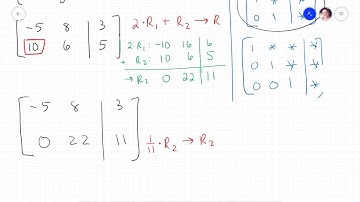 -5 8 | 3
10 6 | 5
2·R₁ + R₂ → R
2·R₁: -10 16 | 6
R₂: 10 6 | 5
→ R₂ 0 22 | 11
0 1 | * *
1 * * | *
0 1 * | *
0 0 1 | *
-5 8 | 3
0 22 | 11
1/11 · R₂ → R₂